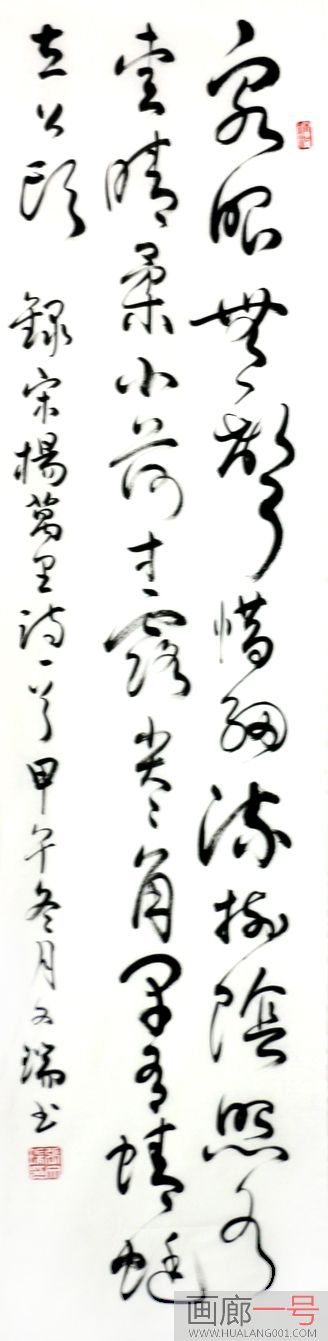 泉眼無聲惜細流樹陰照水
愛晴柔小荷才露尖尖角早有蜻蜓
立上頭 錄宋楊萬里詩一首甲午冬月文瑞書
画廊一号
WWW.HUALANG001.COM